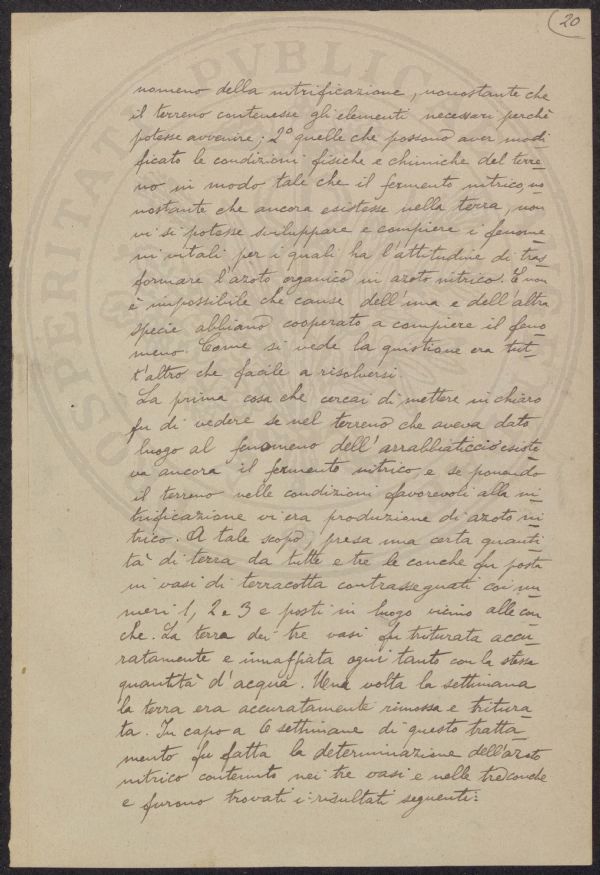 20
nomeno della nitrificazione, nonostante che
il terreno contenesse gli elementi necessari perchè
potesse avvenire; 2º quelle che possono aver modi
ficato le condizioni fisiche e chimiche del terre
no in modo tale che il fermento nitrico, no
nostante che ancora esistesse nella terra, non
vi si potesse sviluppare e compiere i fenome
ni vitali per i quali ha l'attitudine di tras
formare l'azoto organico in azoto nitrico. E non
è impossibile che cause dell'una e dell'altra
specie abbiano cooperato a compiere il feno
meno. Come si vede la quistione era tut-
t'altro che facile a risolversi.
La prima cosa che cercai di mettere in chiaro
fu di vedere se nel terreno che aveva dato
luogo al fenomeno dell'arrabbiaticcio esiste
va ancora il fermento nitrico, e se ponendo
il terreno nelle condizioni favorevoli alla ni
trificazione vi era produzione di azoto ni
trico. A tale scopo, presa una certa quanti
tà di terra da tutte e tre le conche fu posta
in vasi di terracotta contrassegnati coi nu
meri 1, 2 e 3 e posti in luogo vicino alle con
che. La terra dei tre vasi fu triturata accu
ratamente e innaffiata ogni tanto con la stessa
quantità d'acqua. Una volta la settimana
la terra era accuratamente rimossa e tritura
ta. In capo a 6 settimane di questo tratta
mento fu fatta la determinazione dell'azoto
nitrico contenuto nei tre vasi e nelle tre conche
e furono trovati i risultati seguenti: